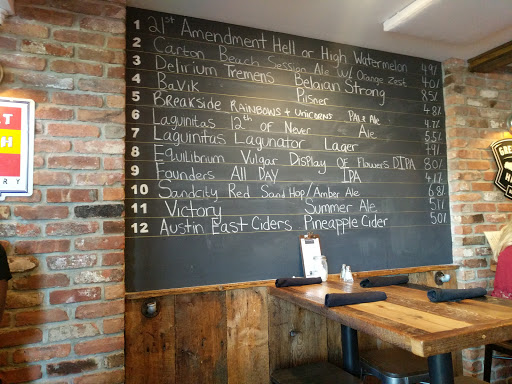 1 21st Amendment Hell or High Watermelon 4.9%
2 Carton Beach Session Ale w/ Orange Zest 4.0%
3 Delirium Tremens Belgian Strong 8.5%
4 BaVik Pilsner 4.8%
5 Breakside Rainbows + Unicorns Pale Ale 4.7%
6 Lagunitas 12th of Never Ale 5.5%
7 Lagunitas Lagunator Lager
8 Equilibrium Vulgar Display OF Flowers DIPA 8.0%
9 Founders All DAY IPA 4.7%
10 Sandcity Red Sand Hop/Amber Ale 6.8%
11 Victory Summer Ale 5.1%
12 Austin East Ciders Pineapple Cider 5.0%